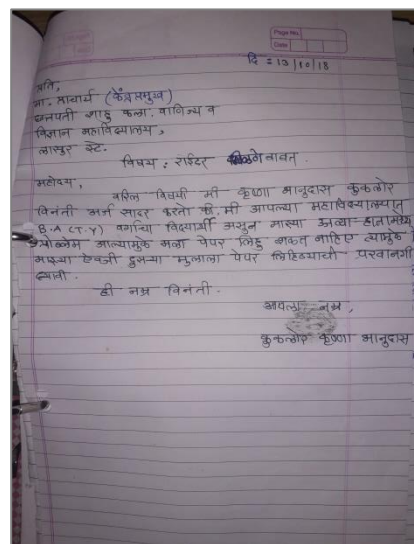 Page No.
Date
दि : 13/10/18
प्रति,
मा. प्राचार्य (केंद्रप्रमुख)
छत्रपती शाहु कला, वाणिज्य व
विज्ञान महाविद्यालय,
लासुर स्टे.
विषय : राईटर मिळणे बाबत.
महोदय,
वरिल विषयी मी कृष्णा भानुदास कुकलोर
विनंती अर्ज सादर करतो की, मी आपल्या महाविद्यालयात
B.A (T.Y) वर्गाचा विद्यार्थी असुन माझ्या उजव्या हातामध्ये
प्रोब्लेम आल्यामुळे मला पेपर लिहु शकत नाहिए त्यामुळे
माझ्या ऐवजी दुसऱ्या मुलाला पेपर लिहिण्याची परवानगी
द्यावी.
ही नम्र विनंती.
आपला नम्र,
कुकलोर कृष्णा भानुदास